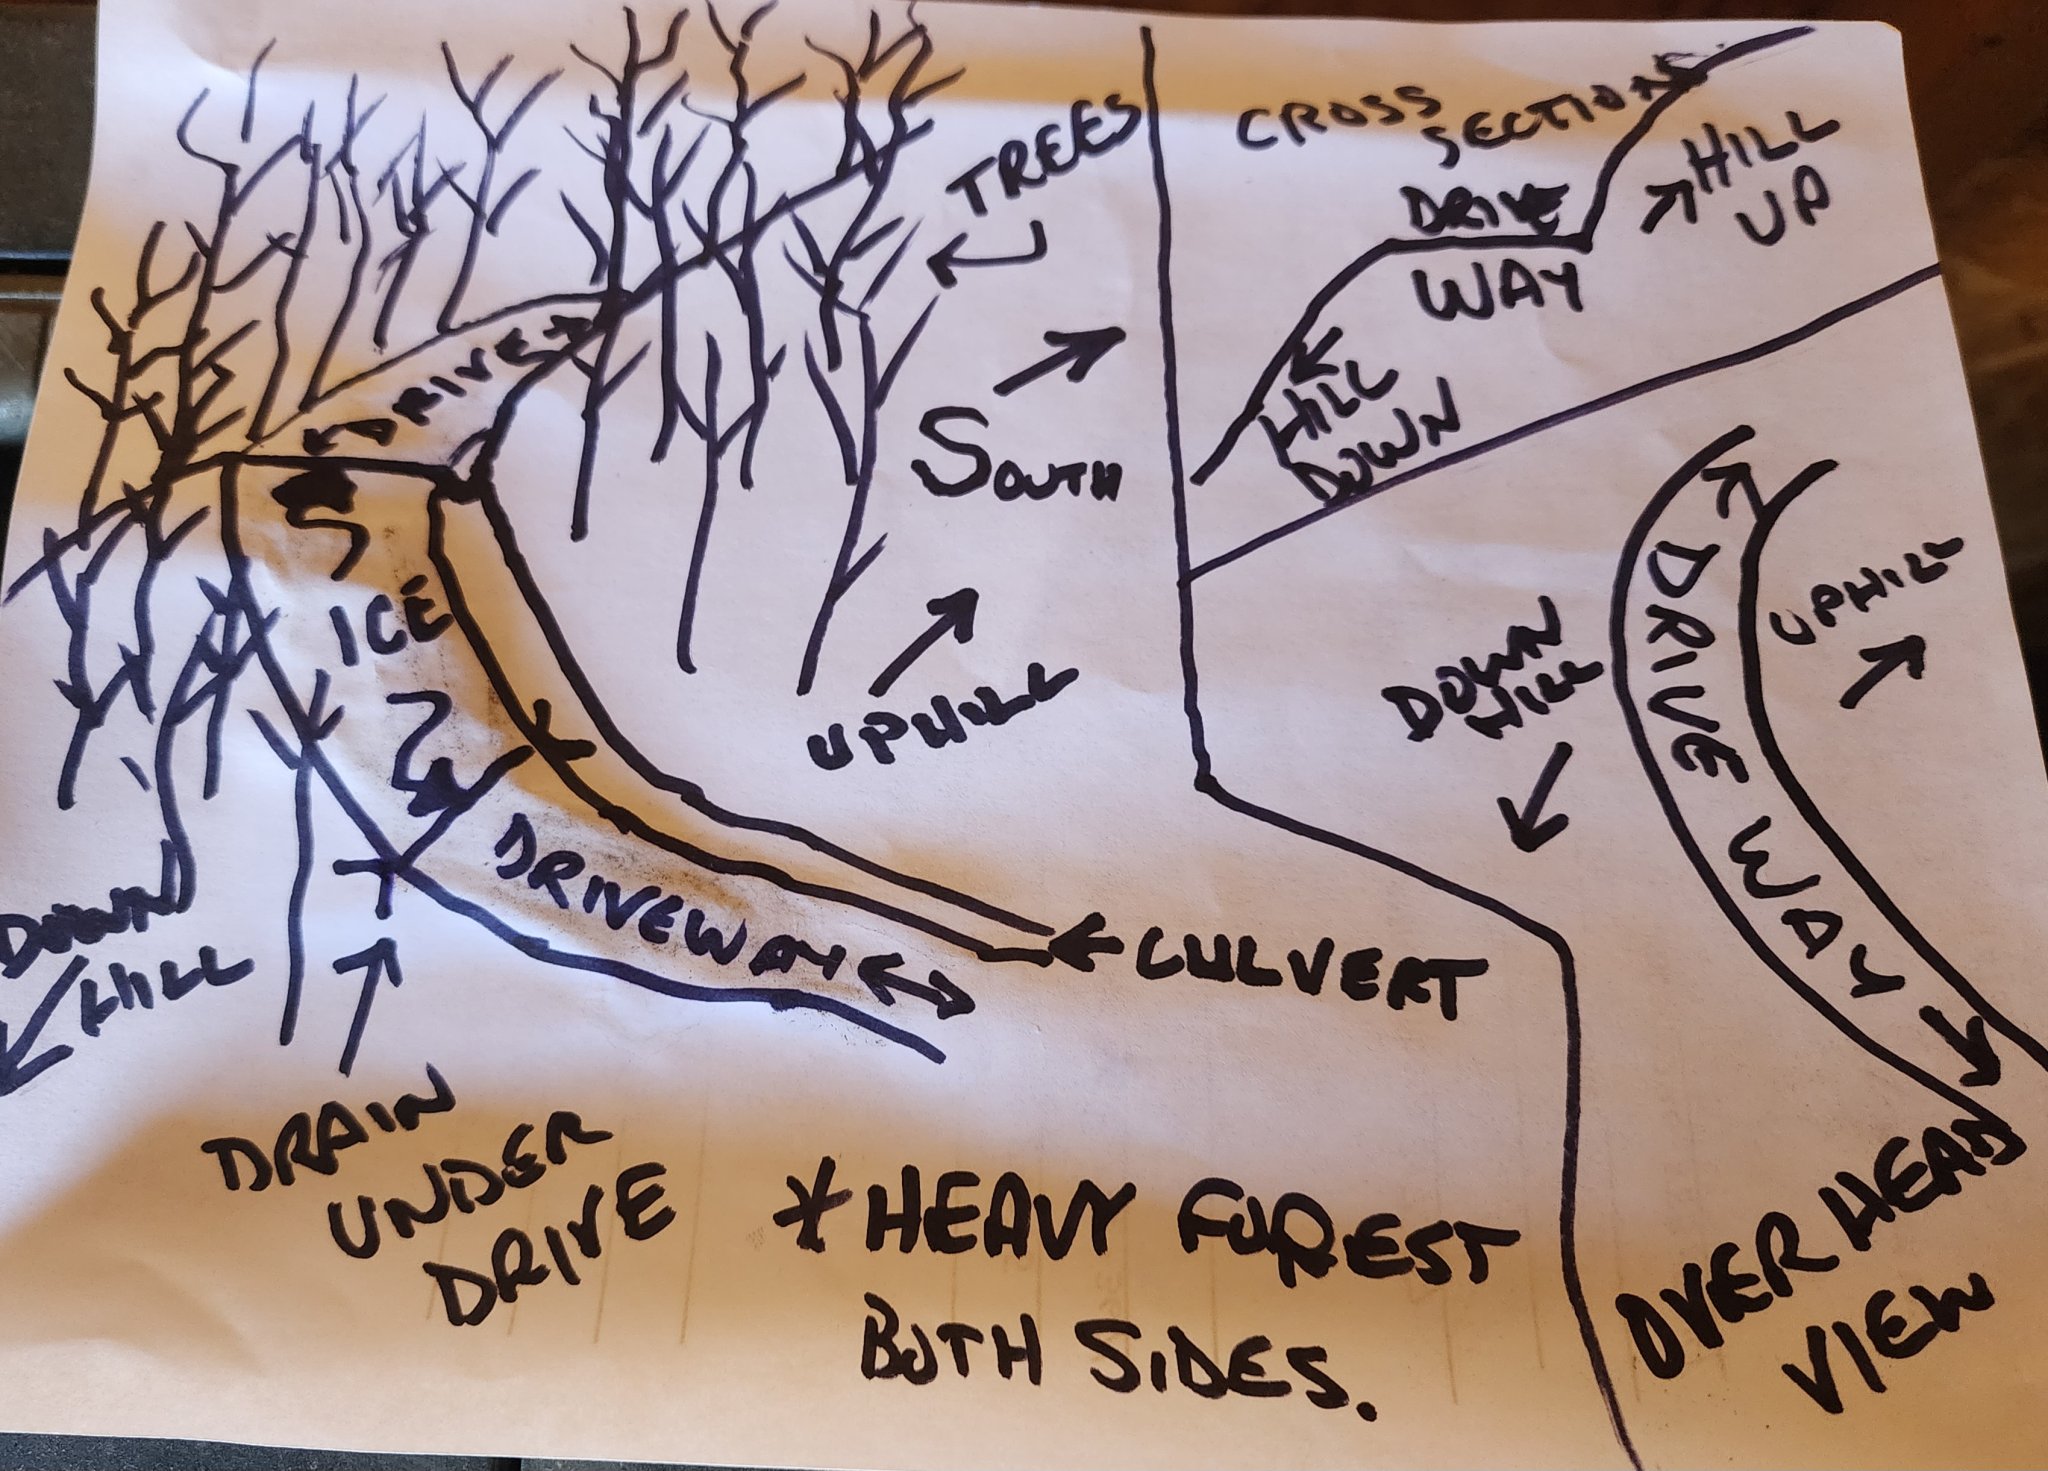 TREES
DRIVE
SOUTH
ICE
UPHILL
DRIVEWAY
CULVERT
DOWN
HILL
DRAIN
UNDER
DRIVE
*HEAVY FOREST
BOTH SIDES.
CROSS
SECTION
DRIVE
WAY
HILL
UP
HILL
DOWN
UPHILL
DOWN
HILL
DRIVE WAY
OVERHEAD
VIEW